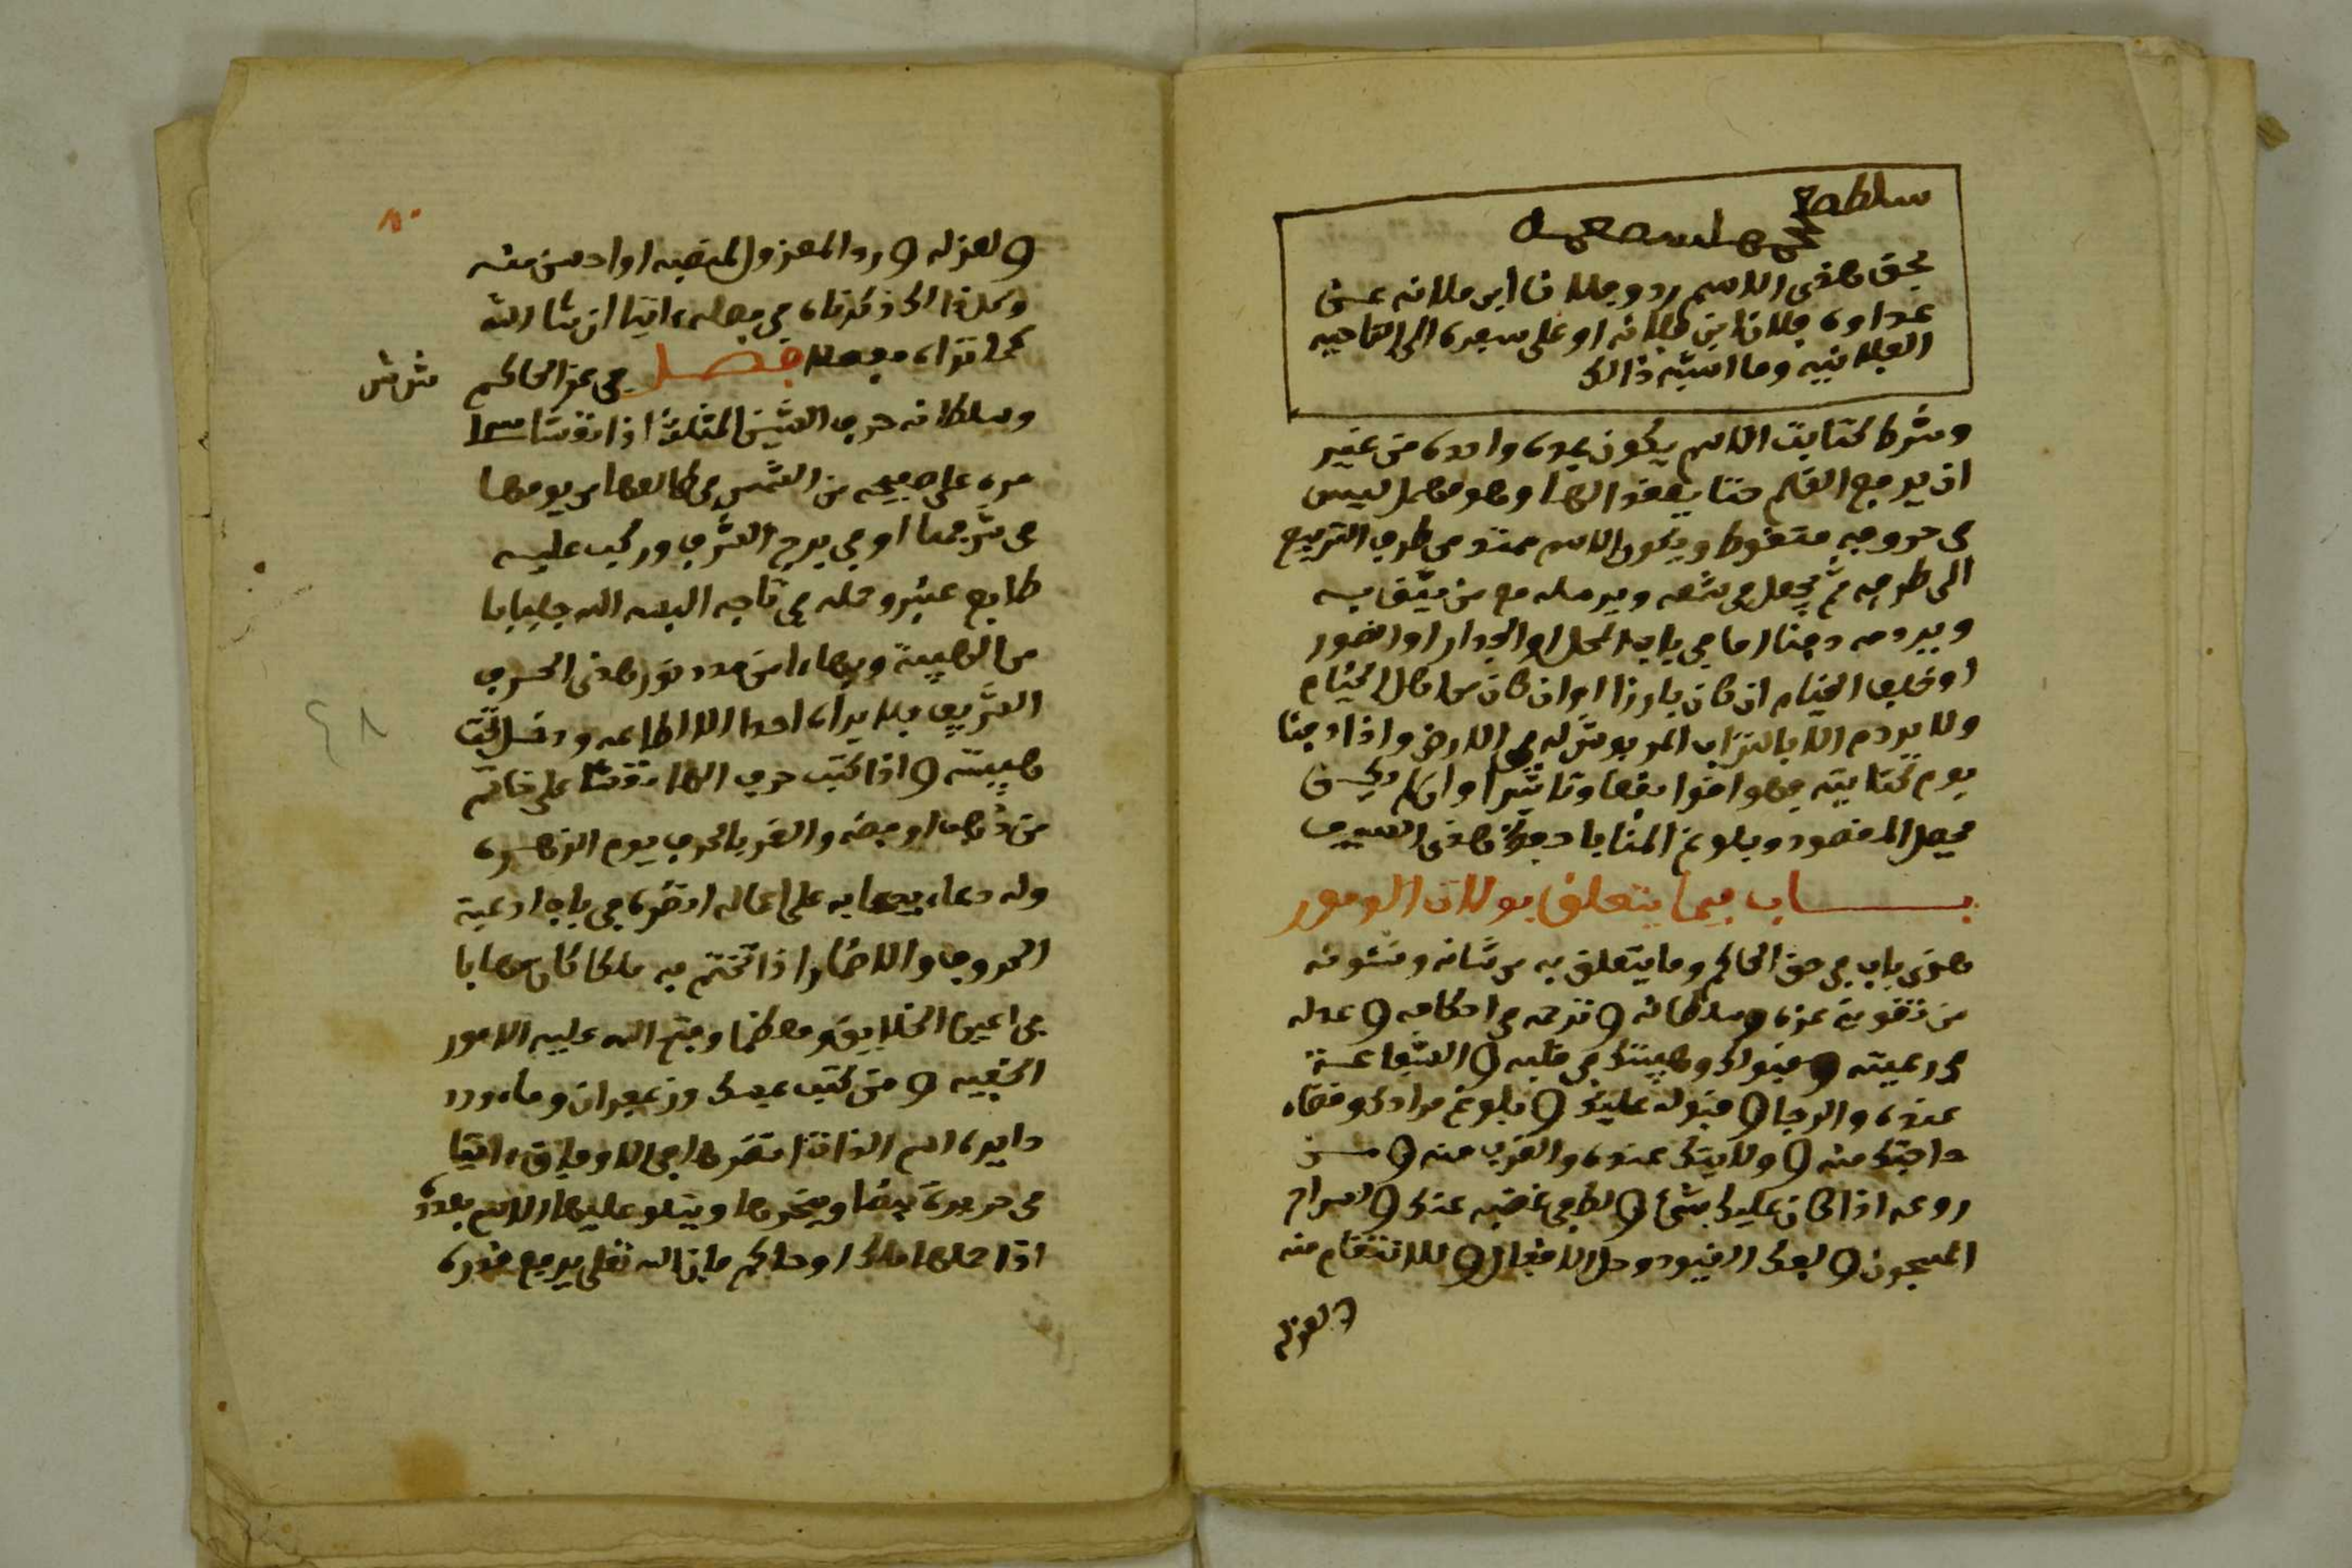 سلطع
بحق هذى الاسم ردو فلان ابن فلانه عن
عداوه فلان ابن فلانه او على سفره الى الناحيه
الفلانيه وما اشبه ذالك
وشرط كتابت الاسم يكون بمده واحده من غير
ان يرفع القلم حتا يعقد الها وهو مهمل ليس
فى حروفه منقوط ويكون الاسم ممتد من طرف التربيع
الى طرفه ثم يجعل فى شمعه ويرسله مع من يثق به
ويردمه دفنا اما فى باب المحل او الجدار او القصور
او خلف الخيام ان كان بارزا او ان كان من اهل الخيام
ولا يردم الا بالتراب المربوش له فى الارض واذا دفنا
يوم كتابته فهو اقوا نفعا وتاثيرا وان لم يكن
يحصل المقصود وبلوغ المنا باد هذى السيف
بـــاب فيما يتعلق بولات الومور
هذى باب فى حق الحاكم وما يتعلق به من شانه وشئونه
من تقوية عزه وسلطانه و نزحه من احكامه و عدله
فى رعيته و قبولك وهيبتك فى قلبه و الشفاعة
عنده والرجا و قبوله عليك و بلوغ مرادك وقضاء
حاجتك منه و ولايتك عنده والقرب منه و من
روعه اذا كان عليك بشئ و لطفى غضبه عنك و لسراح
المسجون و لفك القيود وحل الاقفال و للانتقام منه
و لعزله
٨٠
و لعزله و رد المعزول لمنصبه او احسن منه
وكلذالك ذكرناه فى محله اتيا ان شا الله
كما تراه مفصلا فصل فى عز الحاكم
ش ش
وسلطانه حرف الشين المثلث اذا نقشا
مره على صفيحه من الشمس فى طالعها من يومها
فى شرفها او فى برج الشرف وركب عليه
طابع عنبر وحمله فى تاجه البسه الله جلبابا
من الهيبة وبهاء من مدد نور هذى الحرف
الشريف فلا يراه احدا الا اطاعه ودخل تحت
هيبته و اذا كتب حرف الها نقشا على خاتم
من ذهب او فضه والقمر بالحوت يوم الزهره
وله دعاء يدعا به على اعماله انظره فى باب ادعية
الحروف والاضمار اذا تختم به ملكا كان مهابا
فى اعين الخلايق ومعظما وفتح الله عليه الامور
الخفيه و من كتب بمسك وزعفران وماء ورد
دايره اسم الذات انظرها فى الاوفاق اتيا
فى حريره بيضا ويبخرها ويتلو عليها الاسم بعدده
اذا حملها ملك او حاكم فان الله تعلى يرفع قدره
٤٨